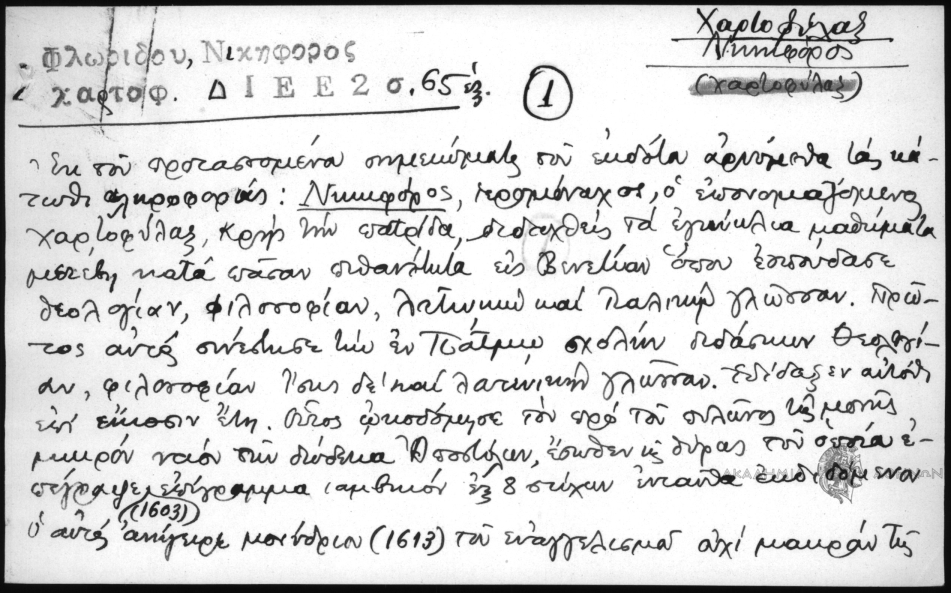 Χαρτοφύλαξ
Νικηφόρος
(Χαρτοφύλαξ)
Φλωρίδου, Νικηφορος
χαρτοφ. ΔΙΕΕ2 σ.65 ἑξ.
1
Ἐκ τοῦ προτασσομένου σημειώματος τοῦ ἐκδότου ἀρυόμεθα τὰς κά-
τωθι πληροφορίας: Νικηφόρος, ἱερομόναχος, ὁ ἐπονομαζόμενος
Χαρτοφύλαξ, Κρὴς τὴν πατρίδα, διδαχθεὶς τὰ ἐγκύκλια μαθήματα
μετέβη κατὰ πᾶσαν πιθανότητα εἰς Βενετίαν ὅπου ἐσπούδασε
θεολογίαν, φιλοσοφίαν, λατινικὴν καὶ Ἰταλικὴν γλῶσσαν. Πρῶ-
τος αὐτὸς συνέστησε τὴν ἐν Πάτμῳ σχολὴν διδάσκων θεολογί-
αν, φιλοσοφίαν ἴσως δὲ καὶ λατινικὴν γλῶσσαν. Ἐδίδαξεν αὐτόθι
ἐπὶ εἴκοσιν ἔτη. Οὗτος ᾠκοδόμησε τὸν πρὸ τοῦ πυλῶνος τῆς μονῆς
μικρὸν ναὸν τῶν δώδεκα Ἀποστόλων, ἔσωθεν τῆς θύρας τοῦ ὁποίου ἐ-
πέγραψε ἐπίγραμμα ἰαμβικὸν ἐξ 8 στίχων ἐνταῦθα ἐκδιδόμενον
(1603)
Ὁ αὐτὸς ἀνήγειρε μονύδριον (1613) τοῦ εὐαγγελισμοῦ οὐχὶ μακρὰν τῆς
ΑΚΑΔΗΜΙΑ ΑΘΗΝΩΝ